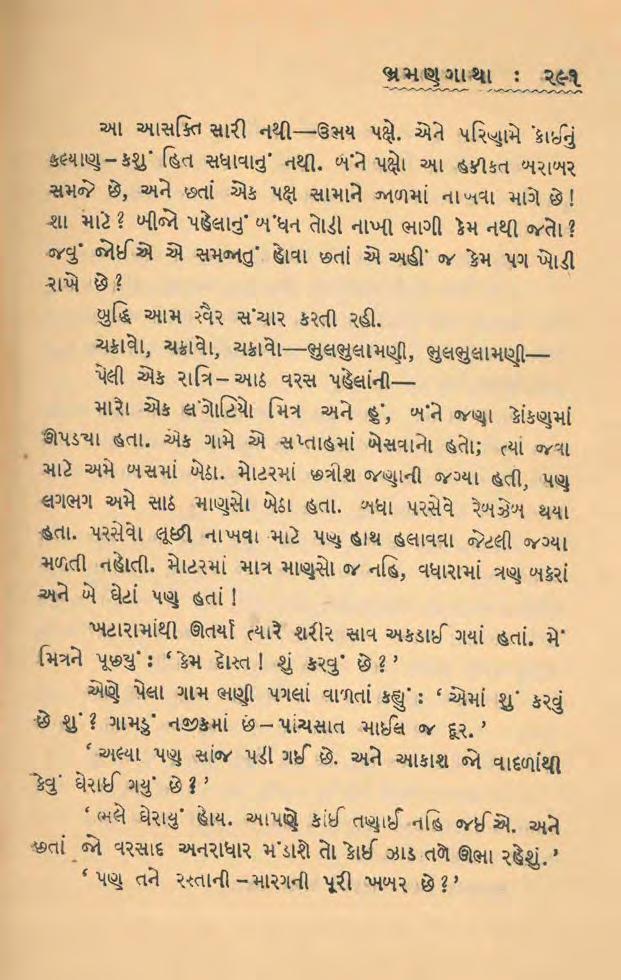 ભ્રમણગાથા : ૨૯૧
આ આસક્તિ સારી નથી—ઉભય પક્ષે. એને પરિણામે કાઈનું
કલ્યાણ–કશું હિત સધાવાનું નથી. બંને પક્ષો આ હકીકત બરાબર
સમજે છે, અને છતાં એક પક્ષ સામાને જાળમાં નાખવા માગે છે!
શા માટે? બીજો પહેલાનું બંધન તોડી નાખી ભાગી કેમ નથી જતો?
જવું જોઈએ એ સમજાતું હોવા છતાં એ અહીં જ કેમ પગ ખોડી
રાખે છે?
બુદ્ધિ આમ સ્વૈર સંચાર કરતી રહી.
ચક્રાવો, ચક્રાવો, ચક્રાવો—ભુલભુલામણી, ભુલભુલામણી—
પેલી એક રાત્રિ–આઠ વરસ પહેલાંની—
મારો એક લંગોટિયો મિત્ર અને હું, બંને જણા કોંકણમાં
ઊપડ્યા હતા. એક ગામે એ સપ્તાહમાં બેસવાનો હતો; ત્યાં જવા
માટે અમે બસમાં બેઠા. મોટરમાં છત્રીશ જણાની જગ્યા હતી, પણ
લગભગ અમે સાઠ માણસો બેઠા હતા. બધા પરસેવે રેબઝેબ થયા
હતા. પરસેવો લૂછી નાખવા માટે પણ હાથ હલાવવા જેટલી જગ્યા
મળતી નહોતી. મોટરમાં માત્ર માણસો જ નહિ, વધારામાં ત્રણ બકરાં
અને બે ઘેટાં પણ હતાં!
ખટારામાંથી ઊતર્યા ત્યારે શરીર સાવ અકડાઈ ગયાં હતાં. મેં
મિત્રને પૂછ્યું: ‘કેમ દોસ્ત! શું કરવું છે?’
એણે પેલા ગામ ભણી પગલાં વાળતાં કહ્યું: ‘એમાં શું કરવું
છે શું? ગામડું નજીકમાં છે–પાંચસાત માઈલ જ દૂર.’
‘અલ્યા પણ સાંજ પડી ગઈ છે. અને આકાશ જો વાદળાંથી
કેવું ઘેરાઈ ગયું છે?’
‘ભલે ઘેરાયું હોય. આપણે કાંઈ તણાઈ નહિ જઈએ. અને
છતાં જો વરસાદ અનરાધાર મંડાશે તો કોઈ ઝાડ તળે ઊભા રહેશું.’
‘પણ તને રસ્તાની–મારગની પૂરી ખબર છે?’